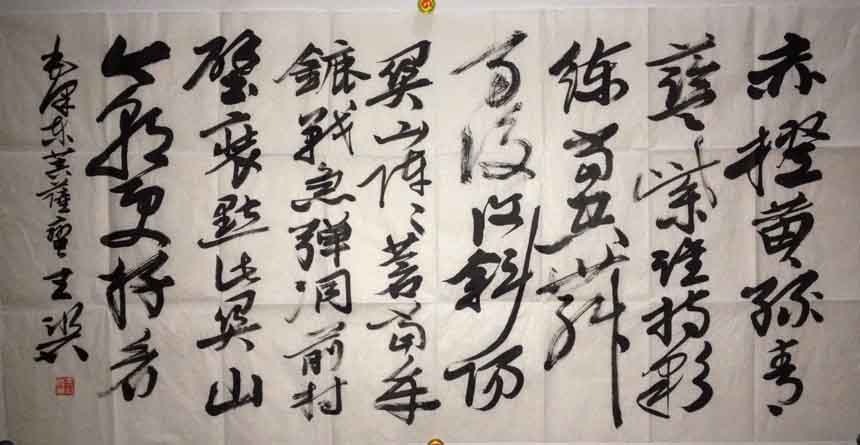 赤橙黄绿青
蓝紫谁持彩
练当空舞
雨後復斜阳
関山阵々苍当年
鏖战急弹洞前村
壁装點此関山
今朝更好看
毛泽东菩薩蛮 王